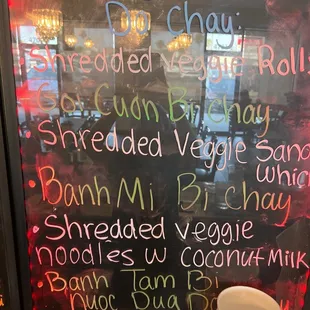 Do Chay:
Shredded Veggie Rolls
Goi Cuon Bi Chay
Shredded Veggie Sand
which
Banh Mi Bi chay
Shredded veggie
noodles w coconut Milk
Banh Tam Bi
Nuoc Dua